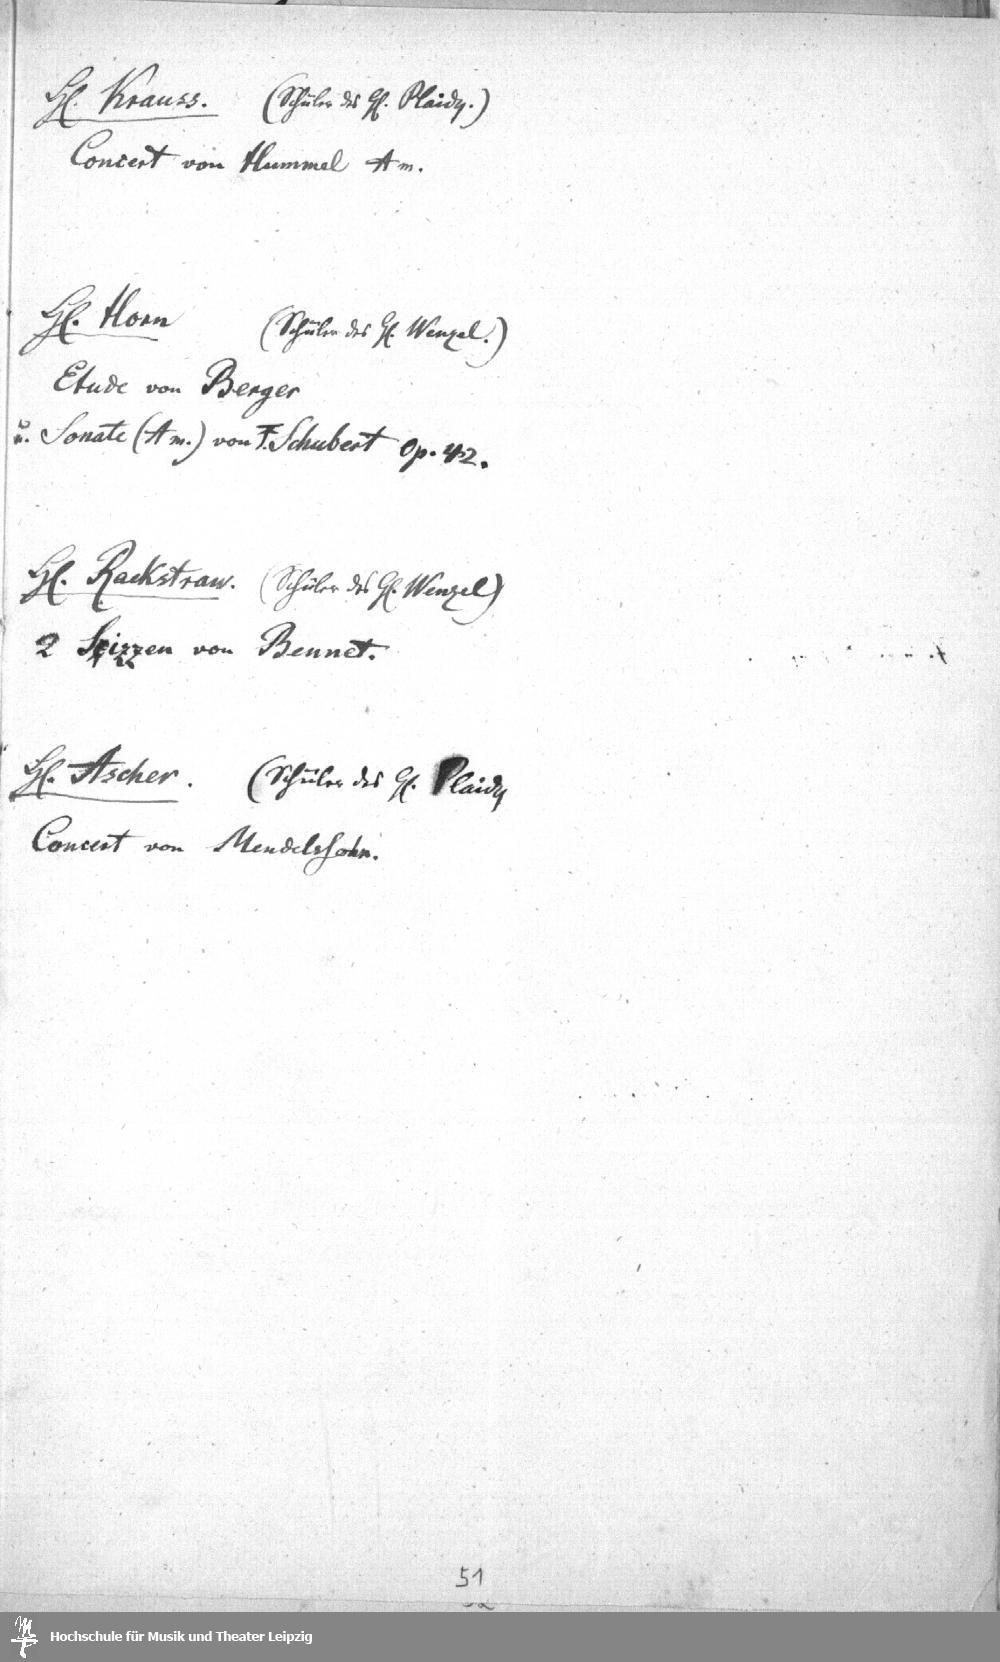 H. Krauss. (Schüler des H. Plaidy.)
Concert von Hummel Am.
H. Horn (Schüler des H. Wenzel.)
Etude von Berger
u. Sonate (Am.) von F. Schubert Op. 42.
H. Rackstraw. (Schüler des H. Wenzel)
2 Skizzen von Bennet.
H. Ascher. (Schüler des H. Plaidy
Concert von Mendelssohn.
51
Hochschule für Musik und Theater Leipzig